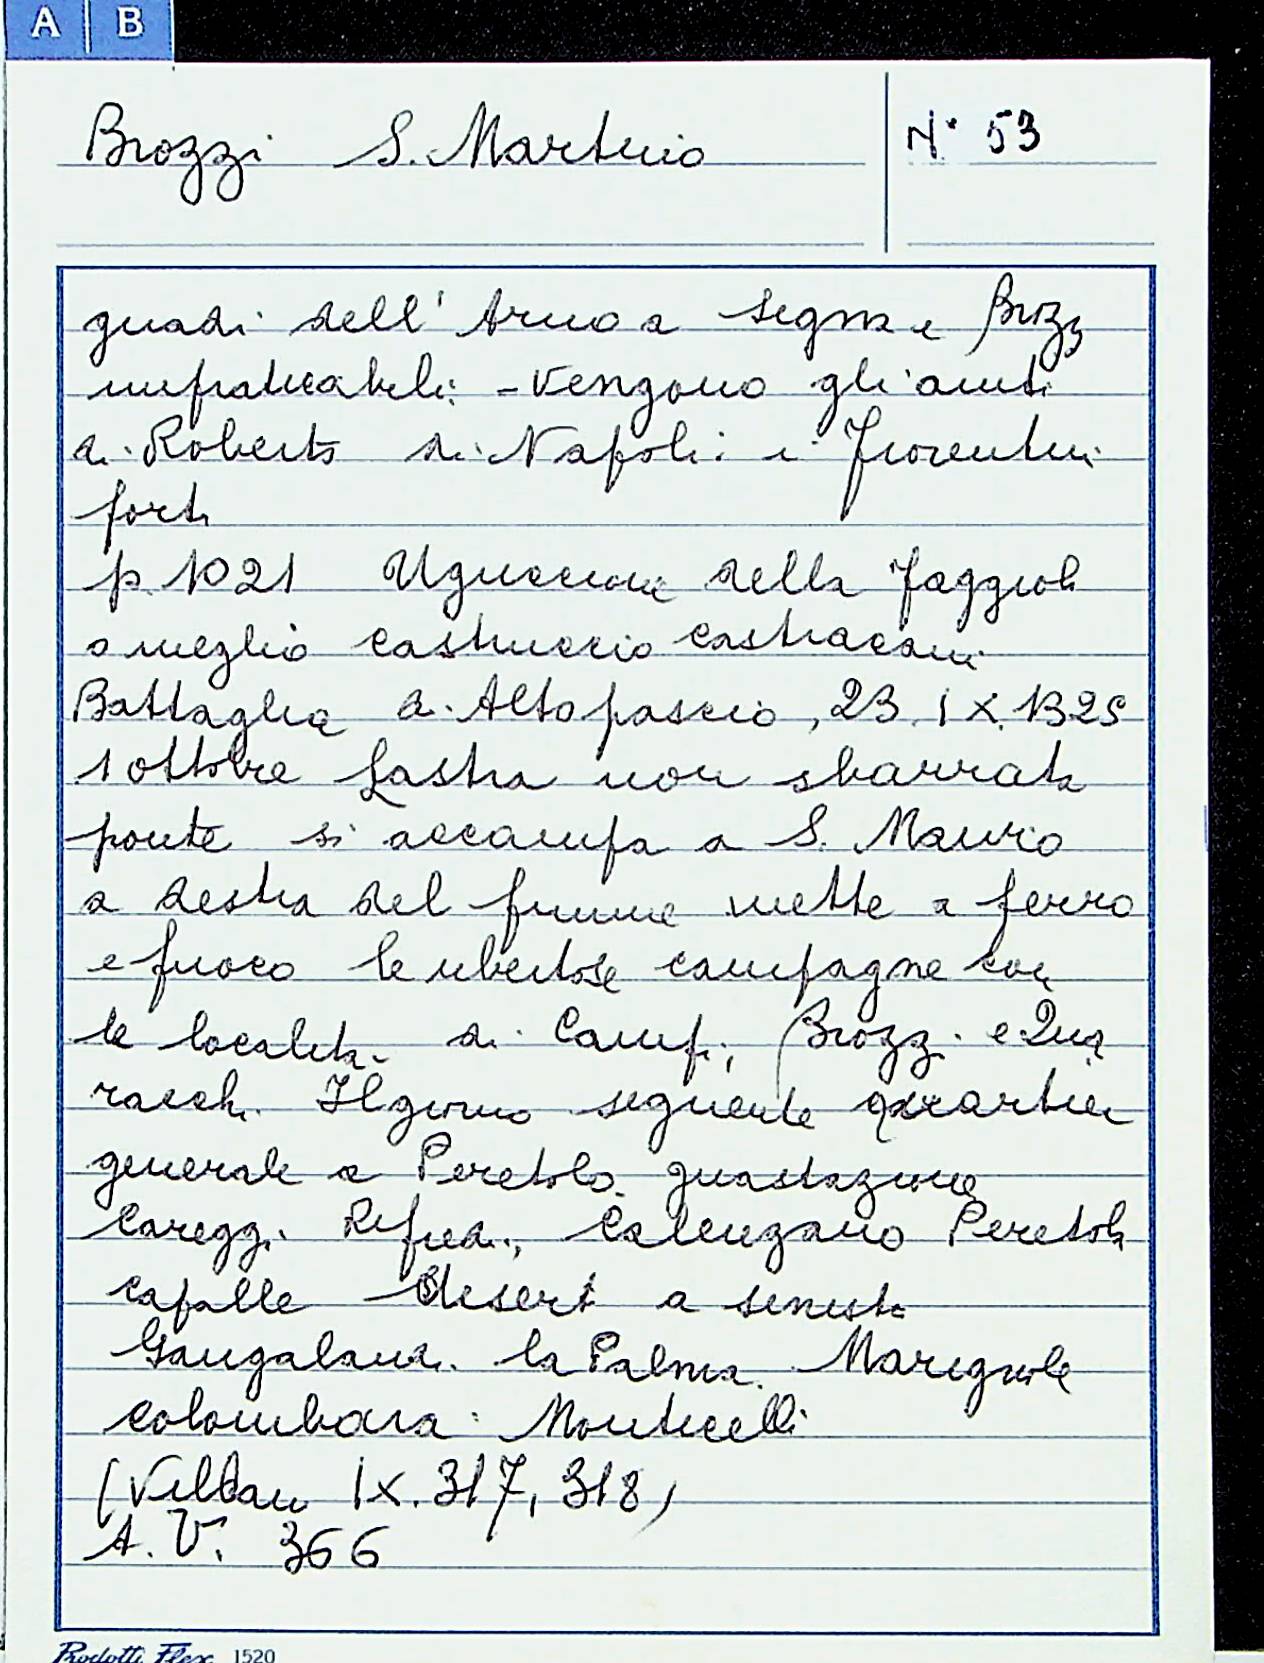 A B
Brozzi S. Martino
N° 53
guadi dell'Arno a Segna e Brozzi
impraticabili - Vengono gli aiuti
di Roberto di Napoli: i Fiorentini
forti
p. 1021 Uguccione della Faggiola
o meglio Castruccio Castracani
Battaglia a Altopascio, 23. IX. 1325
1 ottobre Lastra non sbarrata
ponte si accampa a S. Mauro
a destra del fiume mette a ferro
e fuoco le ubertose campagne con
le località di Campi, Brozzi e Qua
racchi. Il giorno seguente quartier
generale a Peretola. guastazione
Careggi. Rifredi, Calenzano Peretola
Capalle deserti a sinistra
Gangalandi. la Palma. Marignolle
Colombaia: Monticelli
(Villani IX. 317, 318)
A. V. 366
Prodotti Flex 1520